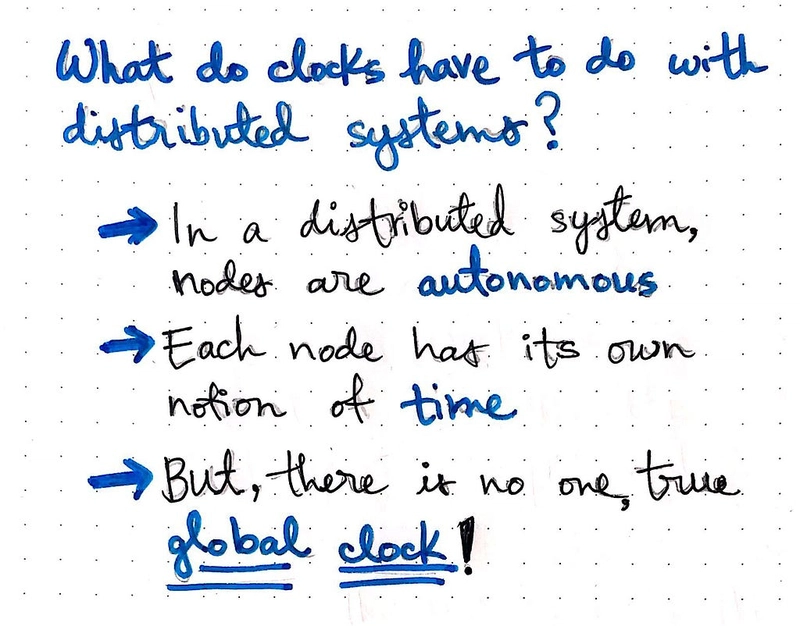 What do clocks have to do with
distributed systems?
→ In a distributed system,
nodes are autonomous
→ Each node has its own
notion of time
→ But, there is no one, true
global clock!